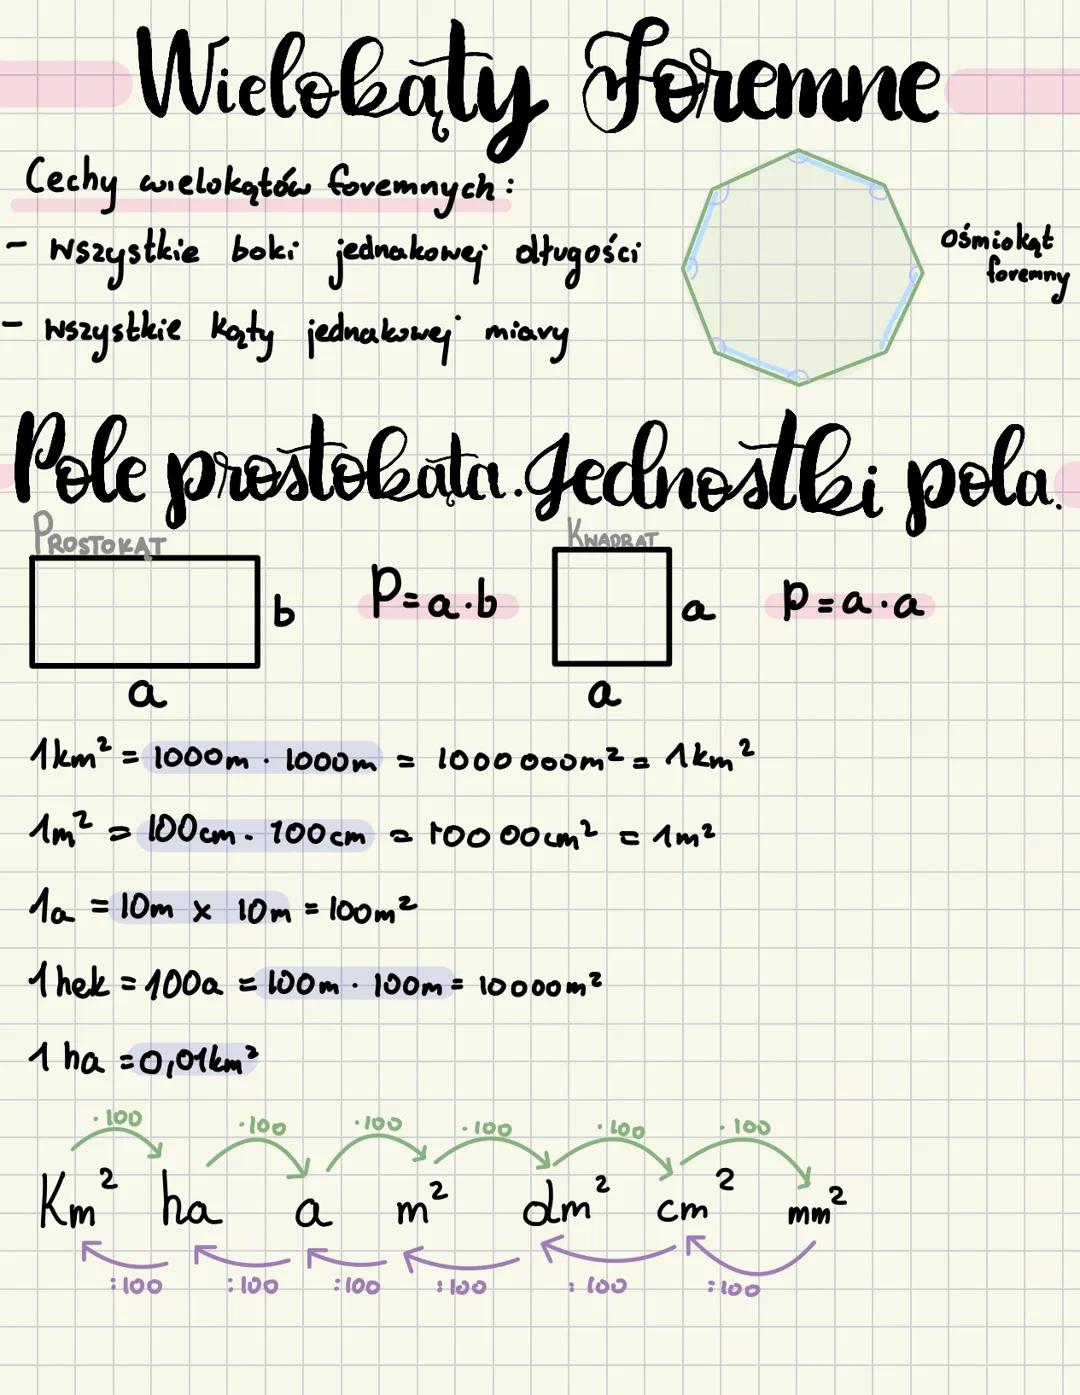 Wielokąty Foremne
Cechy wielokątów foremnych:
- wszystkie boki jednakowej długości
- wszystkie kąty jednakowej miary
ośmiokąt
foremny
Pole prostokąta. Jednostki pola.
PROSTOKĄT
KWADRAT
b
P=a·b
a
P=a·a
a
a
1km² = 1000m · 1000m = 1000 000m² = 1km²
1m² = 100cm · 100cm = 100 00cm² = 1m²
1a = 10m x 10m = 100m²
1hek = 100a = 100m · 100m = 10000m²
1 ha = 0,01km²
·100 ·100 ·100 ·100 ·100 ·100
Km² ha a m² dm² cm² mm²
:100 :100 :100 :100 :100 :100